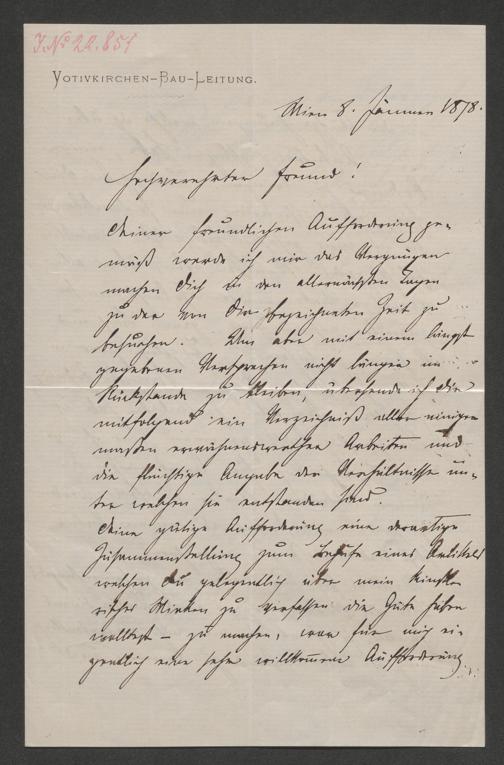 J.N° 22.851
VOTIVKIRCHEN-BAU-LEITUNG.
Wien 8. Jänner 1878.
Hochverehrter Freund!
Deiner freundlichen Aufforderung ge-
mäß werde ich mir das Vergnügen
machen Dich in den allernächsten Tagen
zu der von Dir bezeichneten Zeit zu
besuchen. Um aber mit einem längst
gegebenen Versprechen nicht länger im
Rückstande zu bleiben, übersende ich Dir
mitfolgend ein Verzeichniß aller einiger
maßen erwähnenswerthen Arbeiten und
die flüchtige Angabe der Verhältnisse un-
ter welchen sie entstanden sind.
Deine gütige Aufforderung eine derartige
Zusammenstellung zum Behufe eines Artikels
welchen Du gelegentlich über mein künstle-
risches Wirken zu verfassen die Güte haben
wolltest – zu machen, war für mich ei-
gentlich eine sehr willkommene Aufforderung